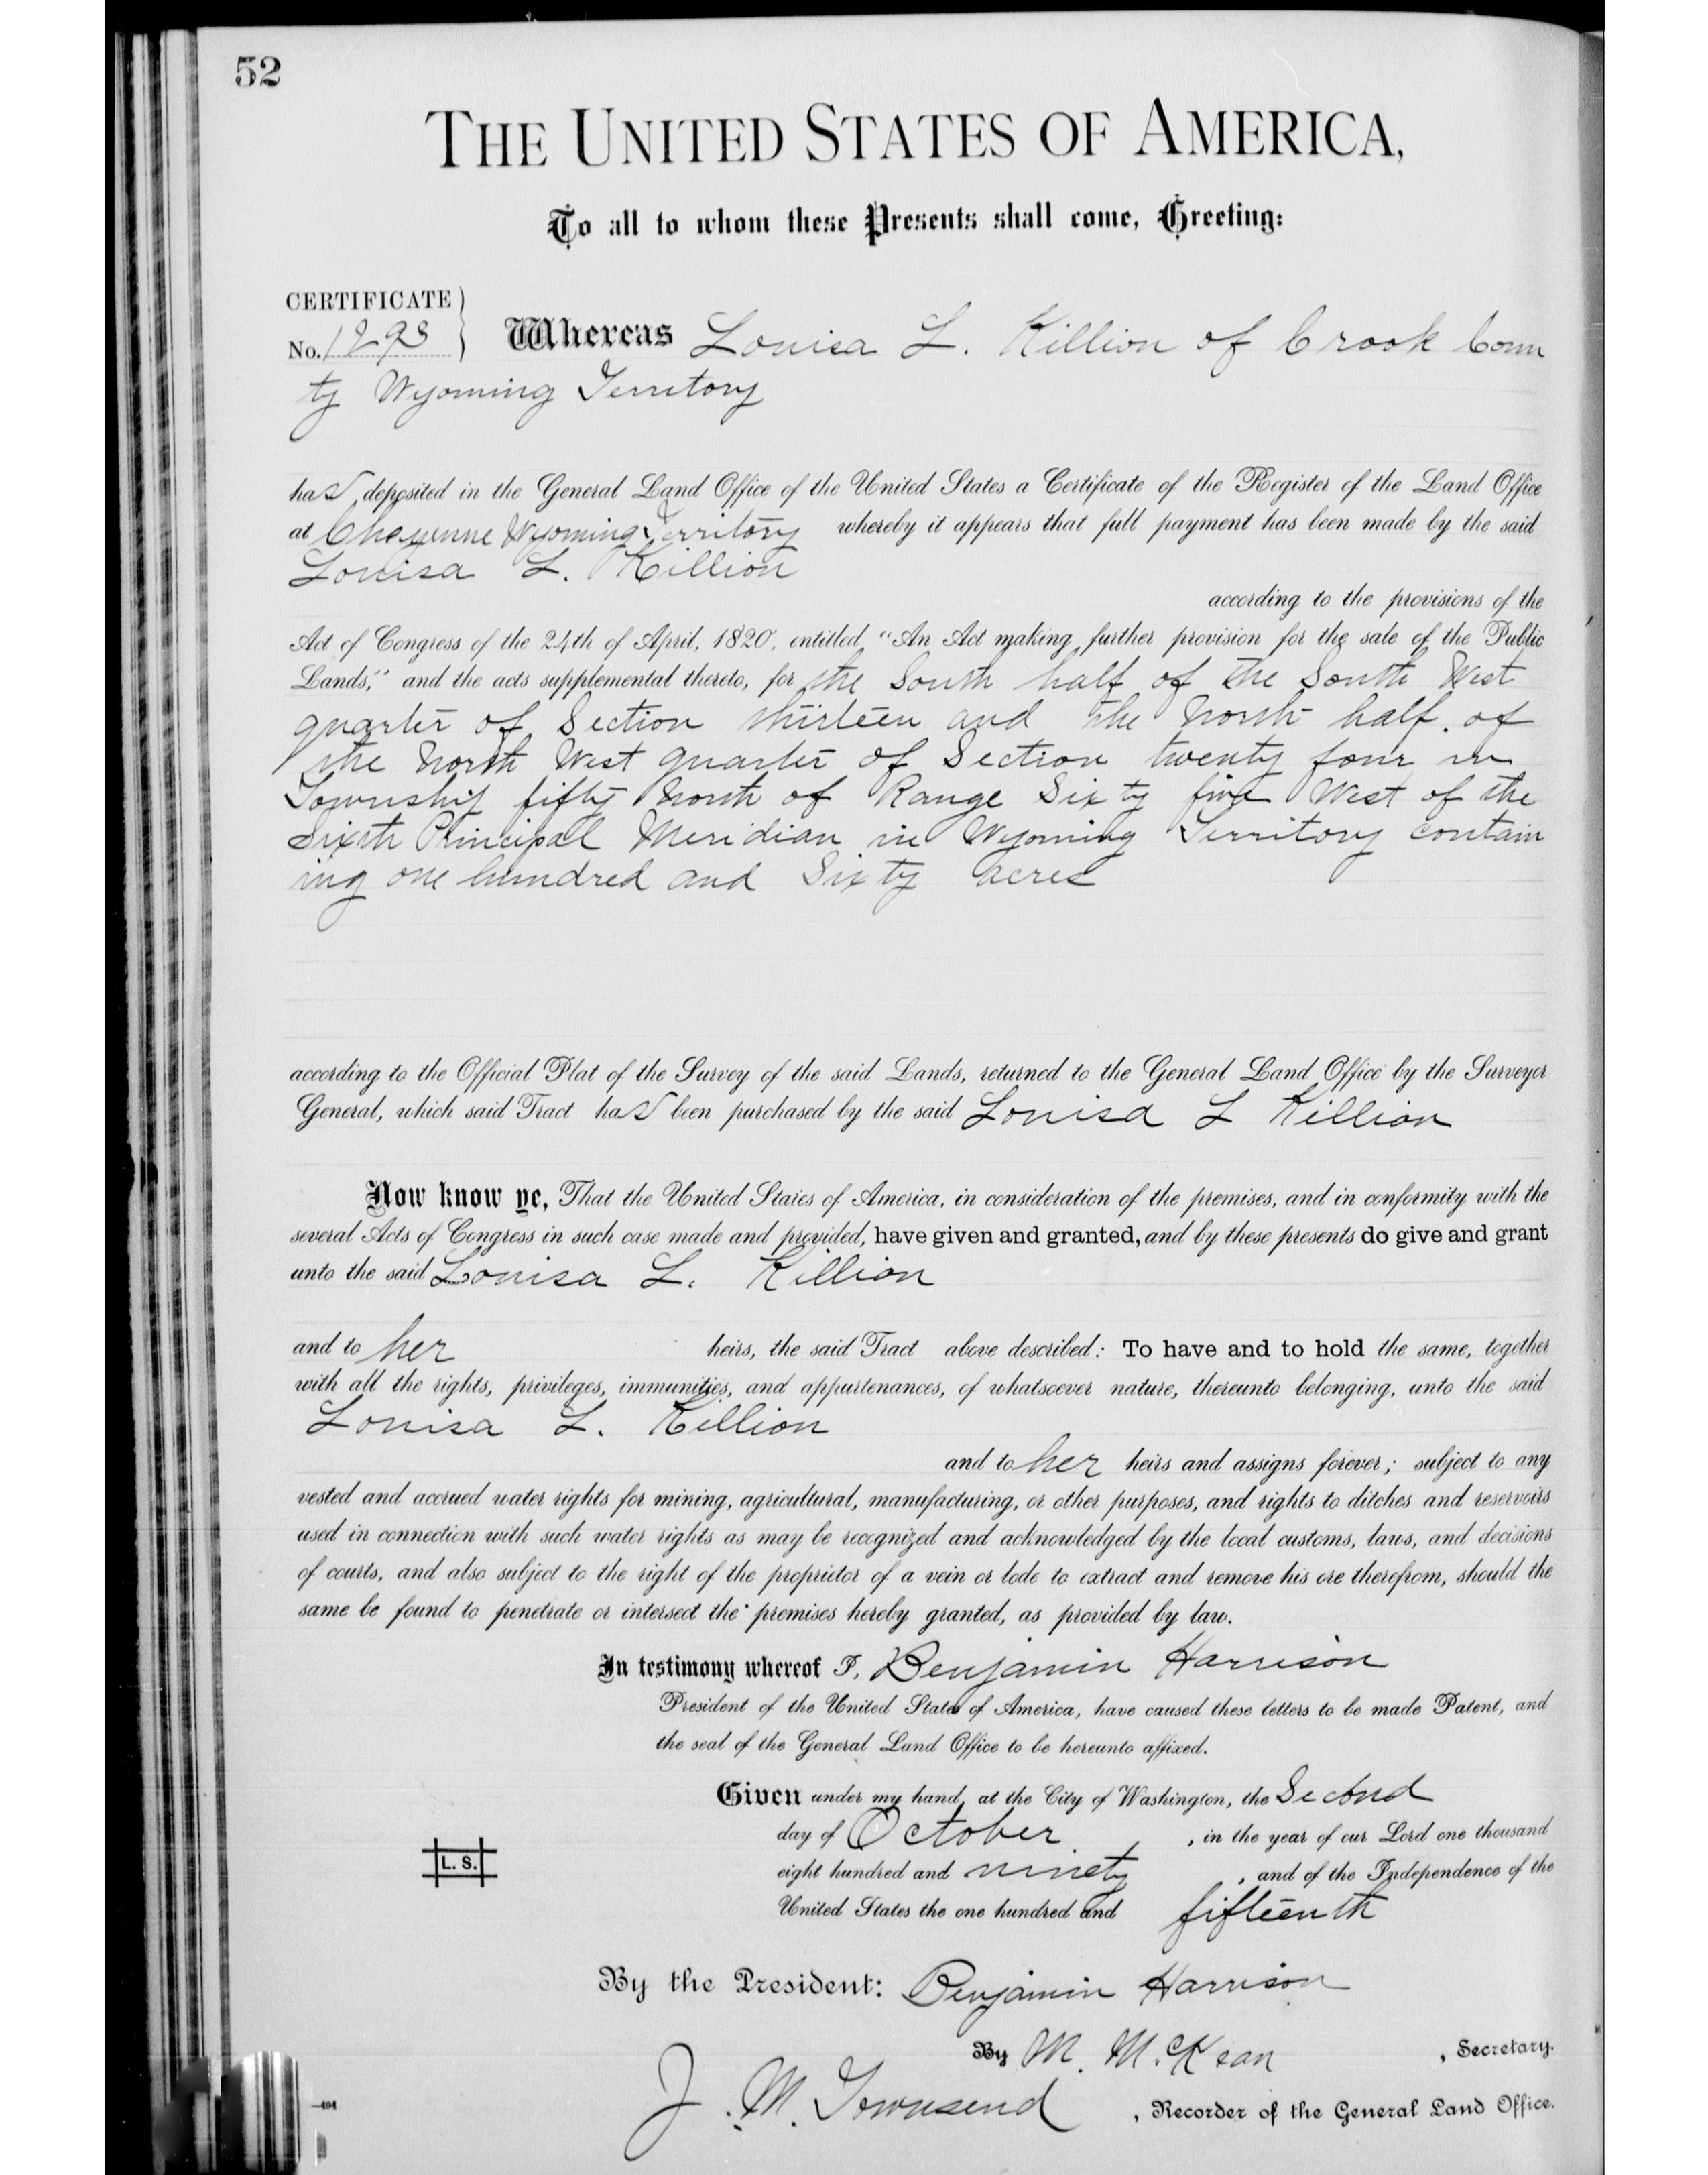 52
THE UNITED STATES OF AMERICA,
To all to whom these Presents shall come, Greeting:
CERTIFICATE
No. 1293 Whereas Louisa L. Killion of Crook Coun
ty Wyoming Territory
has deposited in the General Land Office of the United States a Certificate of the Register of the Land Office
at Cheyenne Wyoming Territory whereby it appears that full payment has been made by the said
Louisa L. Killion
according to the provisions of the
Act of Congress of the 24th of April, 1820, entitled "An Act making further provision for the sale of the Public
Lands," and the acts supplemental thereto, for the South half of the South West
quarter of Section thirteen and the North half of
the North West quarter of Section twenty four in
Township fifty North of Range Sixty five West of the
Sixth Principal Meridian in Wyoming Territory contain
ing one hundred and Sixty acres
according to the Official Plat of the Survey of the said Lands, returned to the General Land Office by the Surveyor
General, which said Tract has been purchased by the said Louisa L Killion
Now know ye, That the United States of America, in consideration of the premises, and in conformity with the
several Acts of Congress in such case made and provided, have given and granted, and by these presents do give and grant
unto the said Louisa L. Killion
and to her heirs, the said Tract above described: To have and to hold the same, together
with all the rights, privileges, immunities, and appurtenances, of whatsoever nature, thereunto belonging, unto the said
Louisa L. Killion
and to her heirs and assigns forever; subject to any
vested and accrued water rights for mining, agricultural, manufacturing, or other purposes, and rights to ditches and reservoirs
used in connection with such water rights as may be recognized and acknowledged by the local customs, laws, and decisions
of courts, and also subject to the right of the proprietor of a vein or lode to extract and remove his ore therefrom, should the
same be found to penetrate or intersect the premises hereby granted, as provided by law.
In testimony whereof I, Benjamin Harrison
President of the United States of America, have caused these letters to be made Patent, and
the seal of the General Land Office to be hereunto affixed.
Given under my hand, at the City of Washington, the Second
day of October, in the year of our Lord one thousand
L. S. eight hundred and ninety, and of the Independence of the
United States the one hundred and fifteenth
By the President: Benjamin Harrison
By M. McKean, Secretary.
J. M. Townsend, Recorder of the General Land Office.
—494